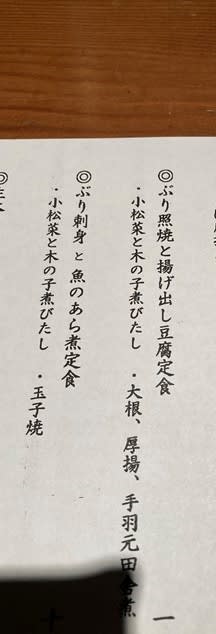 ◎ぶり照焼と揚げ出し豆腐定食
・小松菜と木の子煮びたし ・大根、厚揚、手羽元田舎煮
一
◎ぶり刺身と魚のあら煮定食
・小松菜と木の子煮びたし ・玉子焼
十
◎